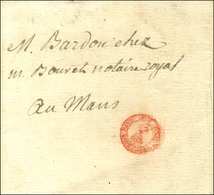 M. Bardou chez
m. Bouvet notaire royal
au Mans